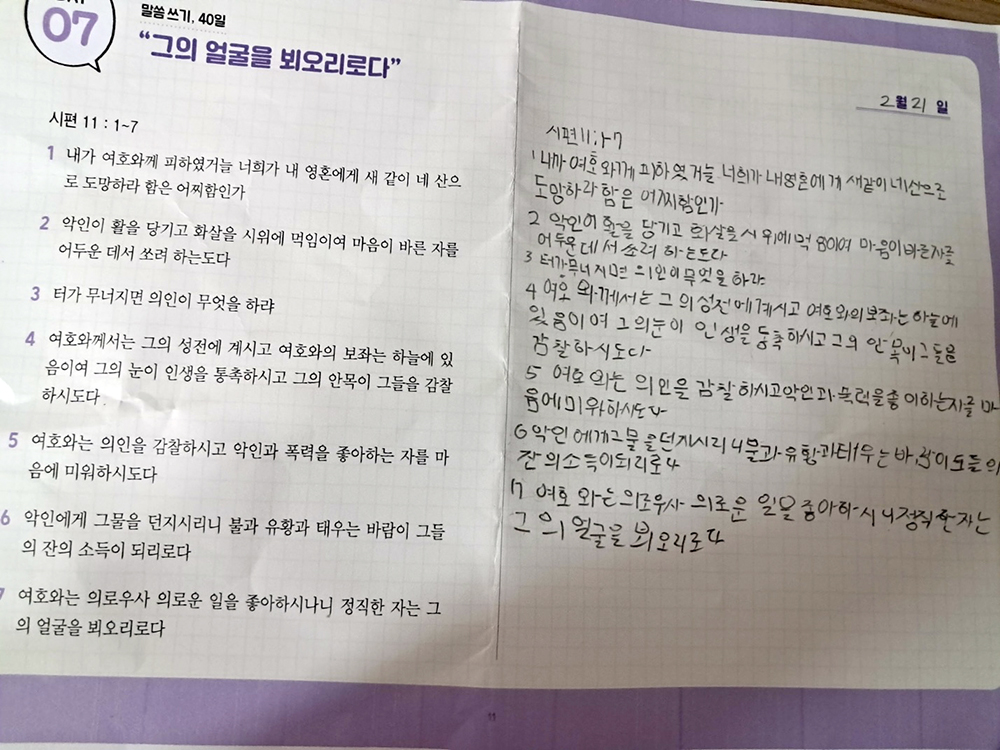 07
말씀 쓰기, 40일
“그의 얼굴을 뵈오리로다”
시편 11 : 1~7
1 내가 여호와께 피하였거늘 너희가 내 영혼에게 새 같이 네 산으
로 도망하라 함은 어찌함인가
2 악인이 활을 당기고 화살을 시위에 먹임이여 마음이 바른 자를
어두운 데서 쏘려 하는도다
3 터가 무너지면 의인이 무엇을 하랴
4 여호와께서는 그의 성전에 계시고 여호와의 보좌는 하늘에 있
음이여 그의 눈이 인생을 통촉하시고 그의 안목이 그들을 감찰
하시도다
5 여호와는 의인을 감찰하시고 악인과 폭력을 좋아하는 자를 마
음에 미워하시도다
6 악인에게 그물을 던지시리니 불과 유황과 태우는 바람이 그들
의 잔의 소득이 되리로다
여호와는 의로우사 의로운 일을 좋아하시나니 정직한 자는 그
의 얼굴을 뵈오리로다
2월 21일
시편 11:1-7
1 내가 여호와께 피하였거늘 너희가 내영혼에게 새같이 네산으로
도망하라 함은 어찌함인가
2 악인이 활을 당기고 화살을 시위에 마음이 바른자를
어두운데서 쏘려 하는도다
3 터가무너지면 의인이무엇을 하랴
4 여호와께서는 그의성전에계시고 여호와의보좌는 하늘에
있음이여 그의눈이 인생을 통촉하시고 그의 안목이그들을
감찰하시도다
5 여호와는 의인을 감찰하시고악인과 폭력을 마
음에미워하시도다
6 악인에게그물을던지시리니불과 유황과태우는
잔의소득이되리로다
7 여호와는의로우사 의로운 일을 좋아하시니정직한자는
그의얼굴을뵈오리로다
11